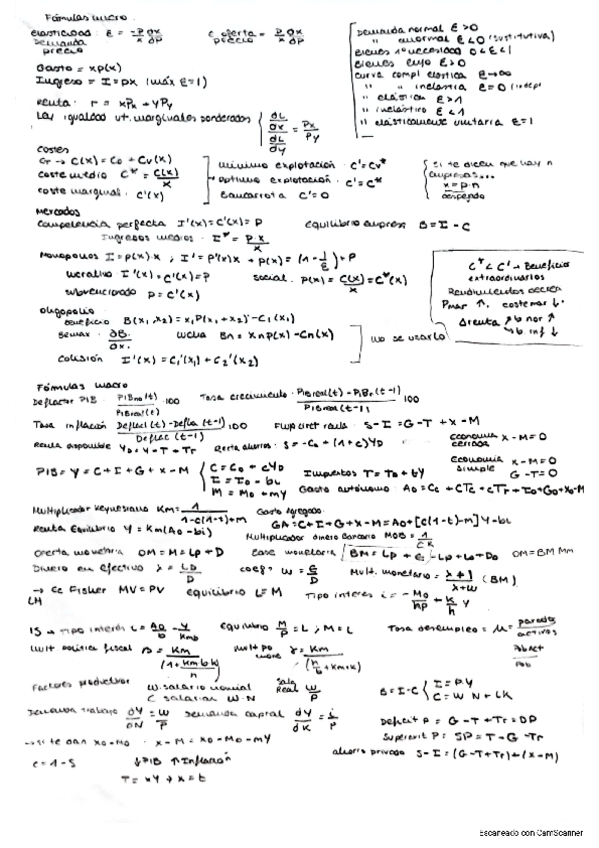 Fórmulas micro
elasticidad: E = -P/X ∂X/∂P
Demanda precio
E oferta precio = P/X ∂X/∂P
Demanda normal E>0
" anormal E<0 (sustitutiva)
bienes 1º necesidad 0<E<1
bienes lujo E>0
curva compl elastica E→∞
" " inelastica E=0
" elástica E>1
" inelástico E<1
" elásticamente unitaria E=1
Gasto = xp(x)
Ingreso = I = px (máx E=1)
renta: r = xPx + yPy
Ley igualdad ut. marginales ponderadas { ∂L/∂x / ∂L/∂y = Px/Py
Costes
CT → C(x) = C0 + Cv(x)
coste medio C* = C(x)/x
coste marginal C'(x)
mínimo explotación: C' = Cv*
→ Óptimo explotación: C' = C*
Bancarrota C' = 0
si te dicen que hay n empresas...
x = p·n
despejando
Mercados
Competencia perfecta I'(x) = C'(x) = P
equilibrio empresa B = I - C
Ingresos medios: I* = P·x/x
Monopolios I = p(x)·x ; I' = P'(x)x + p(x) = (1 - 1/E)·P
lucrativo I'(x) = C'(x) = P
social: P(x) = C(x)/x = C*(x)
subvencionado P = C'(x)
C* < C' → Beneficios extraordinarios
Rendimientos decrec
Pmar ↑, coste mar ↓
Δrenta ↗ b nor ↑
↘ b. inf ↓
Oligopolio
beneficio B(x1,x2) = x1P(x1+x2) - C1(x1)
∂B/∂x1
lucha Bn = xnp(x) - Cn(x)
Colusión I'(x) = C1'(x1) + C2'(x2)
no se usarlo
Fórmulas macro
Deflactor PIB: PIBno(t)/PIBreal(t) ·100
Tasa crecimiento: PIBreal(t) - PIBr(t-1)/PIBreal(t-1) ·100
Tasa inflación Deflac(t) - Defla(t-1)/Deflac(t-1) 100
Flujo circ renta: S - I = G - T + X - M
Renta disponible YD = Y - T + Tr
Renta ahorros: S = -C0 + (1+c)YD
economía cerrada X-M=0
PIB = Y = C + I + G + X - M
C = C0 + cYD
I = I0 - bi
M = M0 + mY
Impuestos T = T0 + tY
Economía simple X-M=0
G-T=0
Gasto autónomo: A0 = C0 + CTr + I0 + G0 + X0 - M
Multiplicador keynesiano Km = 1/1-c(1-t)+m
Gasto Agregado:
GA = C+I+G+X-M = A0 + [c(1-t)-m]Y - bi
Renta Equilibrio Y = Km(A0 - bi)
Multiplicador dinero bancario MDB = 1/
Oferta monetaria OM = M = Lp + D
base monetaria
OM = BM Mm
Dinero en efectivo λ = LD/D
coef: w = E/D
Mult. monetario = λ+1/λ+w (BM)
→ Ec Fisher MV = PV
equilibrio L = M
LM
Tipo interes i = -M0/hp + k/h Y
IS → tipo interés i = A0/b - Y/Kmb
equilibrio M/P = L ; M = L
Tasa desempleo = μ = parados/activos
mult politica fiscal
Factores productivos
W. salario nominal
C salarial W·N
sala Real W/P
B = I - C { I = P·Y
C = W N + iK
Demanda trabajo ∂Y/∂N = W/P
demanda capital ∂Y/∂K = i/P
Deficit P = G - T + Tr = DP
Superavit P: SP = T - G - Tr
→ si te dan X0 - M0: X - M = X0 - M0 - mY
ahorro privado S - I = (G - T + Tr) + (X - M)
c = 1 - s
↓PIB ↑Inflación
T = xY → x = t
Escaneado con CamScanner